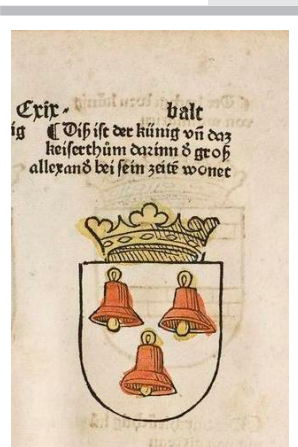 Cxix. balt
ig ¶ Diß ist der künig vñ daz
keiserthům darinn d̕ groß
allexand̕ bei sein zeitẽ wonet